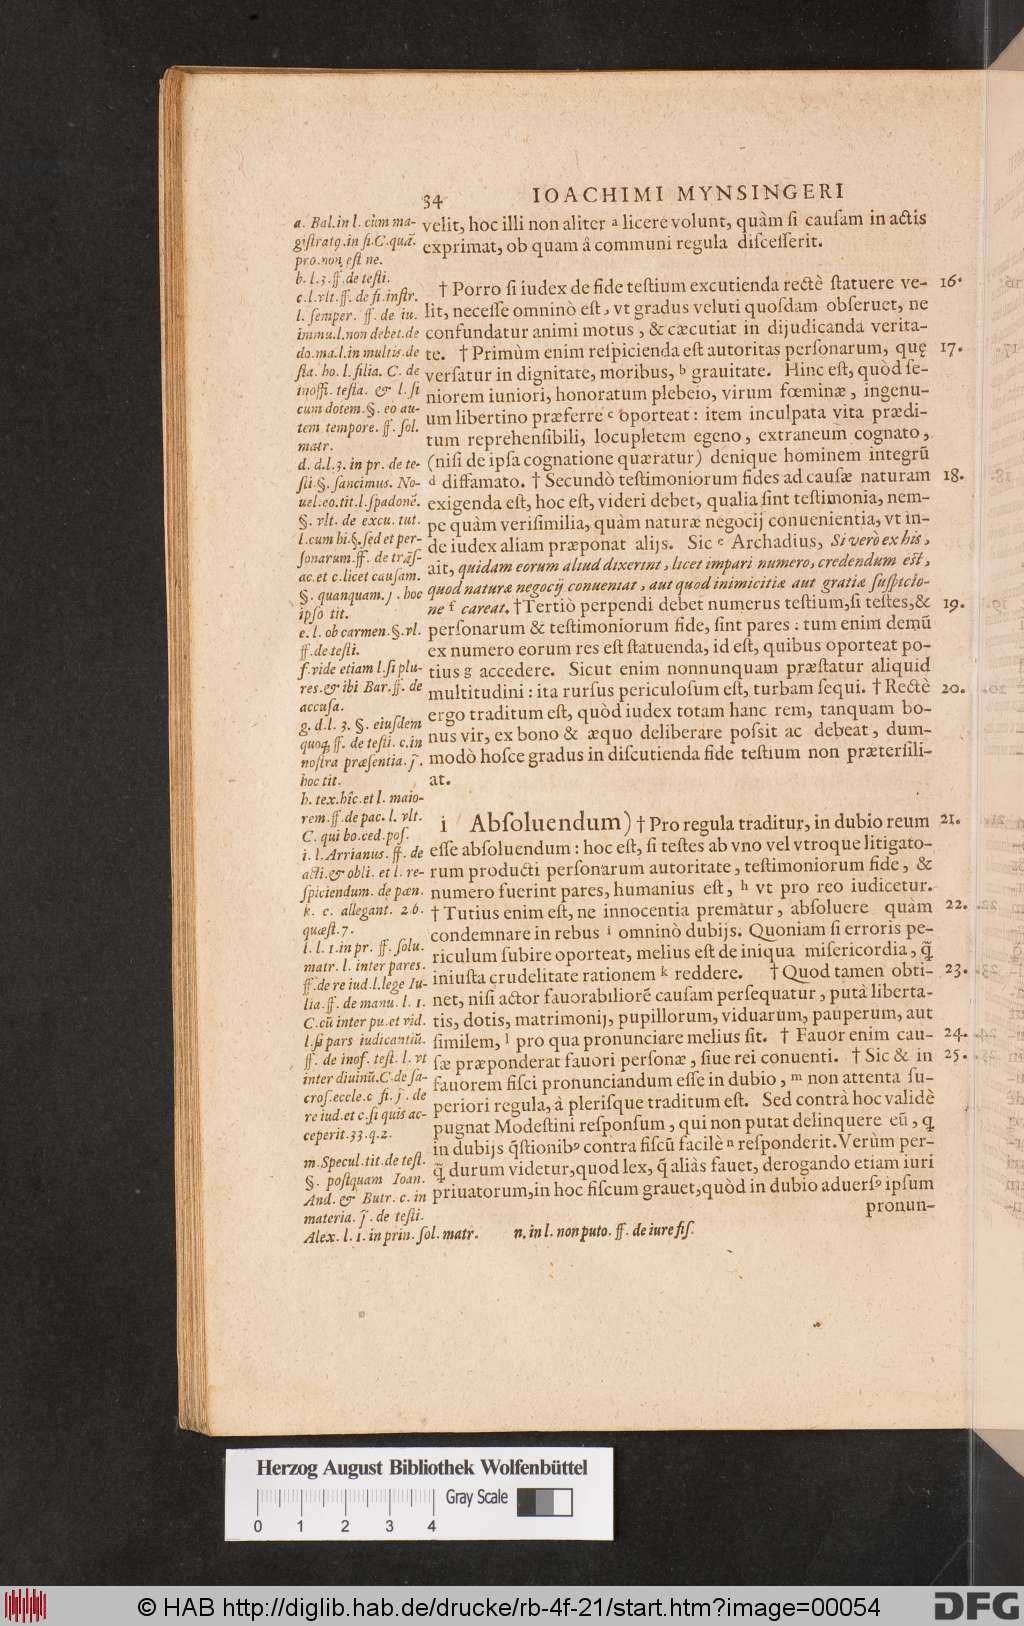 34 IOACHIMI MYNSINGERI
velit, hoc illi non aliter a licere volunt, quàm ſi cauſam in actis
exprimat, ob quam â communi regula diſceſſerit.
† Porro ſi iudex de fide teſtium excutienda rectè ſtatuere ve- 16.
lit, neceſſe omninò eſt, vt gradus veluti quoſdam obſeruet, ne
confundatur animi motus, & cæcutiat in dijudicanda verita-
te. † Primùm enim reſpicienda eſt autoritas perſonarum, quę 17.
verſatur in dignitate, moribus, b grauitate. Hinc eſt, quòd ſe-
niorem iuniori, honoratum plebeio, virum fœminæ, ingenu-
um libertino præferre c oporteat: item inculpata vita prædi-
tum reprehenſibili, locupletem egeno, extraneum cognato,
(niſi de ipſa cognatione quæratur) denique hominem integrũ
d diffamato. † Secundò teſtimoniorum fides ad cauſæ naturam 18.
exigenda eſt, hoc eſt, videri debet, qualia ſint teſtimonia, nem-
pe quàm veriſimilia, quàm naturæ negocij conuenientia, vt in-
de iudex aliam præponat alijs. Sic e Archadius, Si verò ex his,
ait, quidam eorum aliud dixerint, licet impari numero, credendum est,
quod naturæ negocij conueniat, aut quod inimicitiæ aut gratiæ ſuſpicio-
ne f careat. † Tertiò perpendi debet numerus teſtium, ſi teſtes, & 19.
perſonarum & teſtimoniorum fide, ſint pares: tum enim demũ
ex numero eorum res eſt ſtatuenda, id eſt, quibus oporteat po-
tius g accedere. Sicut enim nonnunquam præſtatur aliquid
multitudini: ita rurſus periculoſum eſt, turbam ſequi. † Rectè 20.
ergo traditum eſt, quòd iudex totam hanc rem, tanquam bo-
nus vir, ex bono & æquo deliberare poſsit ac debeat, dum-
modò hoſce gradus in diſcutienda fide teſtium non præterſili-
at.
i Abſoluendum) † Pro regula traditur, in dubio reum 21.
eſſe abſoluendum: hoc eſt, ſi teſtes ab vno vel vtroque litigato-
rum producti perſonarum autoritate, teſtimoniorum fide, &
numero fuerint pares, humanius eſt, h vt pro reo iudicetur.
† Tutius enim eſt, ne innocentia prematur, abſoluere quàm 22.
condemnare in rebus i omninò dubijs. Quoniam ſi erroris pe-
riculum ſubire oporteat, melius eſt de iniqua miſericordia, q̃
iniuſta crudelitate rationem k reddere. † Quod tamen obti- 23.
net, niſi actor fauorabiliorẽ cauſam perſequatur, putà liberta-
tis, dotis, matrimonij, pupillorum, viduarum, pauperum, aut
ſimilem, l pro qua pronunciare melius ſit. † Fauor enim cau- 24.
ſæ præponderat fauori perſonæ, ſiue rei conuenti. † Sic & in 25.
fauorem fiſci pronunciandum eſſe in dubio, m non attenta ſu-
periori regula, à pleriſque traditum eſt. Sed contrà hoc validè
pugnat Modeſtini reſponſum, qui non putat delinquere eũ, q
in dubijs q̃ſtionibꝰ contra fiſcũ facilè n reſponderit. Verùm per-
q̃ durum videtur, quod lex, q̃ aliàs fauet, derogando etiam iuri
priuatorum, in hoc fiſcum grauet, quòd in dubio aduerſꝰ ipſum
pronun-
a. Bal. in l. cùm ma-
giſtratꝰ. in fi. C. quã.
pro. non eſt ne.
b. l. 3. ff. de teſti.
c. l. vlt. ff. de fi. inſtr.
l. ſemper. ff. de iu.
immu. l. non debet. de
do. ma. l. in multis. de
ſta. ho. l. filia. C. de
inoffi. teſta. & l. ſi
cum dotem. §. eo au-
tem tempore. ff. ſol.
matr.
d. d. l. 3. in pr. de te-
ſti. §. ſancimus. No-
uel. eo. tit. l. ſpadonẽ.
§. vlt. de excu. tut.
l. cum hi. §. ſed et per-
ſonarum. ff. de trãſ-
ac. et c. licet cauſam.
§. quanquam. j. hoc
ipſo tit.
e. l. ob carmen. §. vl.
ff. de teſti.
f. vide etiam l. ſi plu-
res. & ibi Bar. ff. de
accuſa.
g. d. l. 3. §. eiuſdem
quoq; ff. de teſti. c. in
noſtra præſentia. j.
hoc tit.
h. tex. hîc. et l. maio-
rem. ff. de pac. l. vlt.
C. qui bo. ced. poſ.
i. l. Arrianus. ff. de
acti. & obli. et l. re-
ſpiciendum. de pœn.
k. c. allegant. 26.
quæſt. 7.
l. l. 1. in pr. ff. ſolu.
matr. l. inter pares.
ff. de re iud. l. lege Iu-
lia. ff. de manu. l. 1.
C. cũ inter pu. et vid.
l. ſi pars iudicantiũ.
ff. de inof. teſt. l. vt
inter diuinũ. C. de ſa-
croſ. eccle. c fi. j. de
re iud. et c. ſi quis ac-
ceperit. 33. q. 2.
m. Specul. tit. de teſt.
§. poſtquam Ioan.
And. & Butr. c. in
materia. j. de teſti.
Alex. l. 1. in prin. ſol. matr. n. in l. non puto. ff. de iure fiſ.
Herzog August Bibliothek Wolfenbüttel
Gray Scale
0 1 2 3 4
© HAB http://diglib.hab.de/drucke/rb-4f-21/start.htm?image=00054
DFG